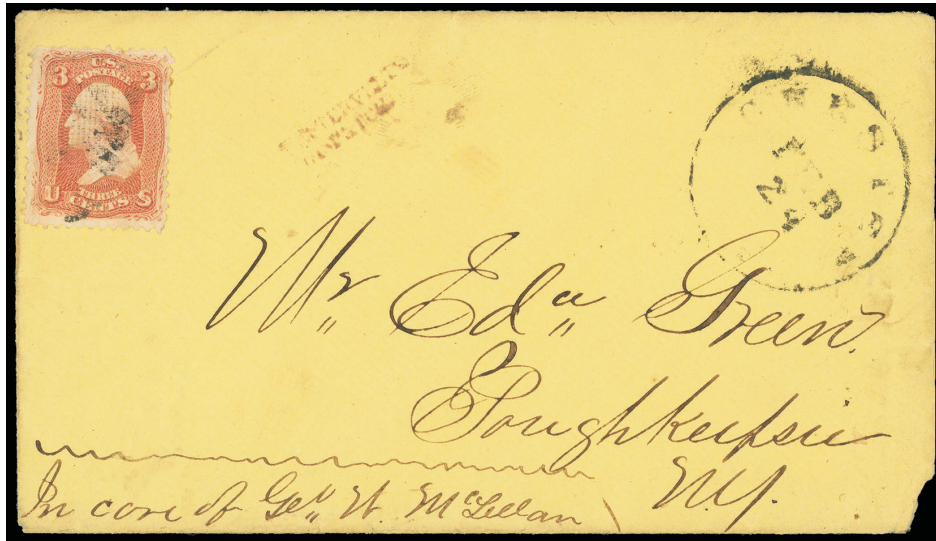 3 U.S. 3
POSTAGE
U THREE S
CENTS
FEB
24
Mr,, Ed,,a Green.
Poughkeepsie
N.Y.
In care of Geo,, W. McLellan